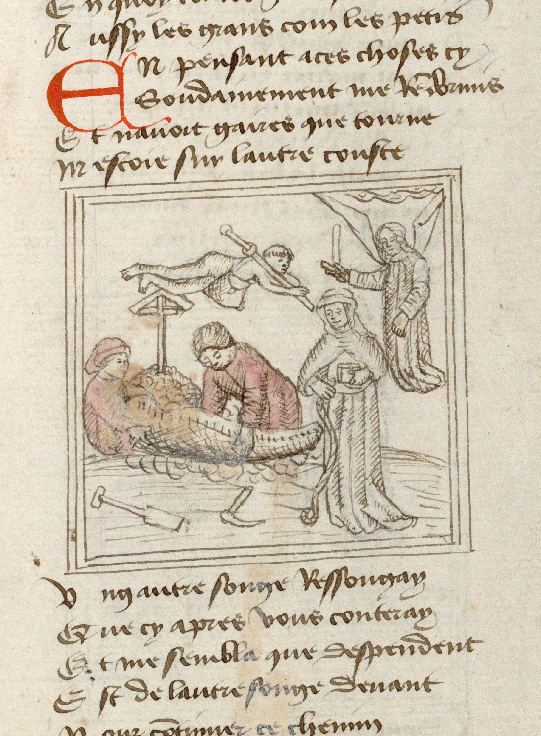 En quoy
Aussy les grans com les petis
En pensant a ces choses cy
Soudainement me Rendormis
Et navoit gaires que tourne
Mestoie suy lautre couste
Ung autre songe Ressongay
Que cy apres vous conteray
Et me sembla que despendent
Est de lautre songe devant
Pour continuer ce chemin